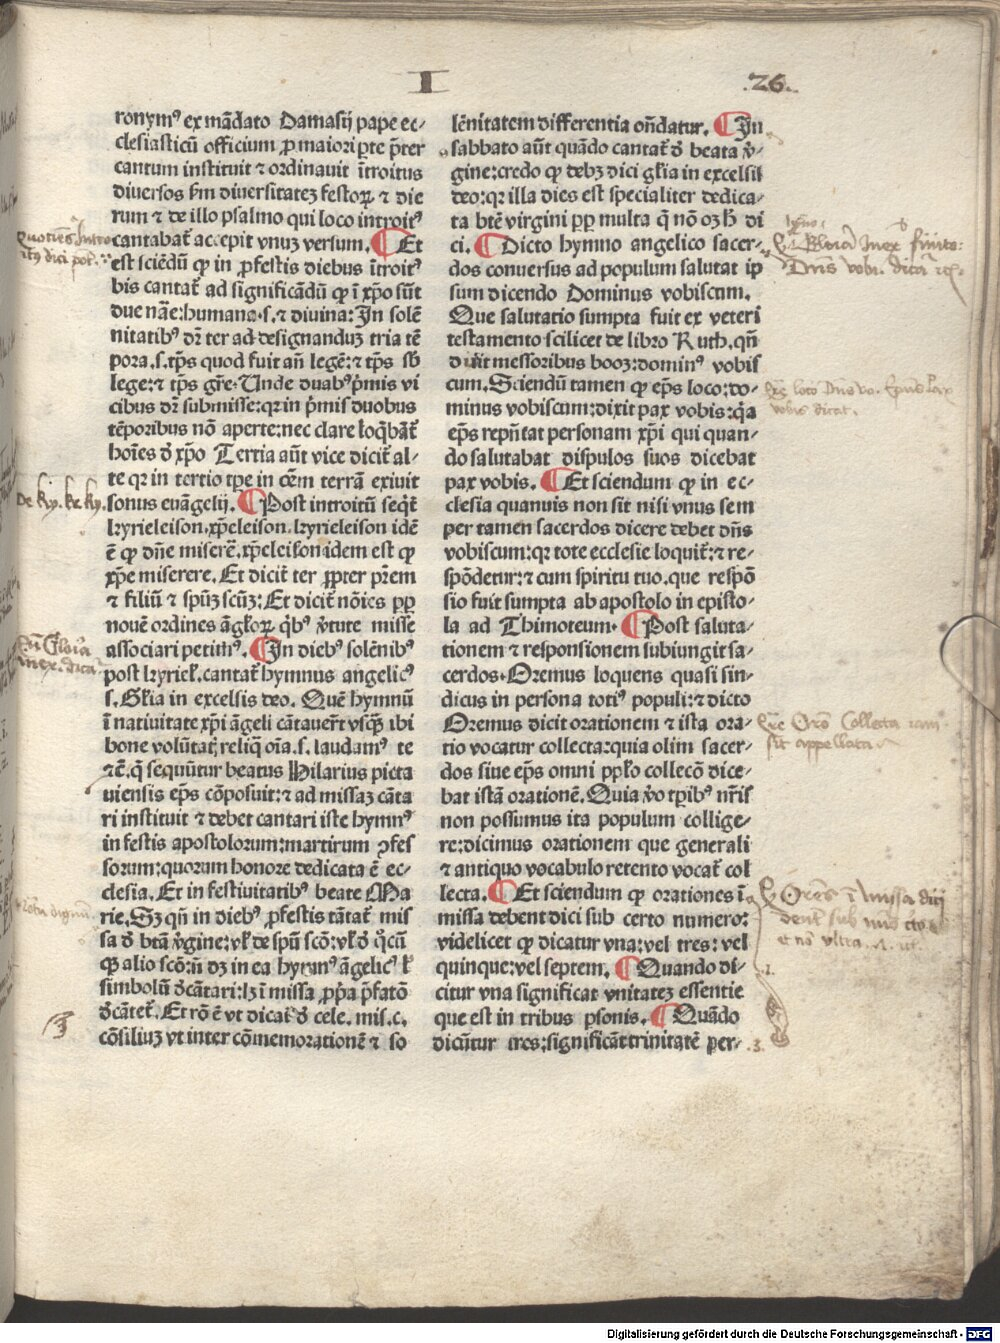 I
26.
ronymꝰ ex mādato Damasij pape ec-
clesiasticū officium ꝓ maiori ꝑte p̄ter
cantum instituit ⁊ ordinauit ītroitus
diuersos ẜm diuersitatez festoꝝ ⁊ die
rum ⁊ de illo psalmo qui loco introitꝰ
cantabat᷑ accepit vnuz versum. ¶ Et
est sciēdū ꝙ in ꝓfestis diebus ītroitꝰ
bis cantat᷑ ad significādū ꝙ ī xp̄o sūt
due nāe: humana .s. ⁊ diuina: In solē
nitatibꝰ dr̄ ter ad designanduz tria tē
pora .s. tp̄s quod fuit añ legē: ⁊ tp̄s sb̄
lege: ⁊ tp̄s gr̄e. Unde duabꝰ p̄mis vi
cibus dr̄ submisse: qr in p̄mis duobus
tēporibus nō aperte: nec clare loq̄bāt᷑
hoīes ð xp̄o Tertia aūt vice dicit᷑ al-
te qr in tertio tp̄e in oēm terrā exiuit
sonus euāgelij. ¶ Post introitū seq̄t᷑
kyrieleison. xp̄eleison. kyrieleison idē
ē ꝙ dn̄e miserē. xp̄eleison idem est ꝙ
xp̄e miserere. Et dicit᷑ ter ꝓpter pr̄em
⁊ filiū ⁊ spūz scūz: Et dicit᷑ nōies ꝓp̄
nouē ordines āgloꝝ qͥbꝰ v̄tute misse
associari petimꝰ. ¶ In diebꝰ solēnibꝰ
post kyriel̄. cantat᷑ hymnus angelicꝰ
.s. Gl̄ia in excelsis deo. Quē hymnū
ī natiuitate xp̄i āgeli cātauer̄t vsq̄ʒ ibi
bone volūtatꝭ reliq̄ oīa .s. laudamꝰ te
⁊c̄. q̄ sequūtur beatus Hilarius picta
uiensis ep̄s cōposuit: ⁊ ad missaz cāta
ri instituit ⁊ debet cantari iste hymnꝰ
in festis apostolorum: martirum ꝯfes
sorum: quorum honore dedicata ē ec-
clesia. Et in festiuitatibꝰ beate Ma
rie. Sz qñ in diebꝰ ꝓfestis cātat᷑ mis
sa ð btā v̄gine: vl̄ de spū scō: vl̄ ð qͦcū
qʒ alio scō: n̄ dz in ea hymnꝰ āgelicꝰ l̄
simbolū ðcātari: lz ī missa ꝓp̄a p̄fatō
ðcātet᷑. Et rō ē vt dicat᷑ ð cele. mis. c.
cōsiliuz vt inter cōmemorationē ⁊ so
lēnitatem differentia on̄datur. ¶ In
sabbato aūt quādo cantat᷑ ð beata v̄-
gine: credo ꝙ debz dici gl̄ia in excelsis
deo: qr illa dies est specialiter dedica-
ta btē virgini ꝓp̄ multa q̄ nō oz ħ di
ci. ¶ Dicto hymno angelico sacer-
dos conuersus ad populum salutat ip
sum dicendo Dominus vobiscum.
Que salutatio sumpta fuit ex veteri
testamento scilicet de libro Ruth. qñ
dixit messoribus booz: dominꝰ vobis
cum. Sciendū tamen ꝙ ep̄s loco: do-
minus vobiscum: dixit pax vobis: qͥa
ep̄s repn̄tat personam xp̄i qui quan-
do salutabat dispulos suos dicebat
pax vobis. ¶ Et sciendum ꝙ in ec-
clesia quanuis non sit nisi vnus sem
per tamen sacerdos dicere debet dn̄s
vobiscum: qr tote ecclesie loquit᷑: ⁊ re-
spōdetur: ⁊ cum spiritu tuo. que respō
sio fuit sumpta ab apostolo in episto-
la ad Thimoteum. ¶ Post saluta-
tionem ⁊ responsionem subiungit sa-
cerdos. Oremus loquens quasi sin-
dicus in persona totiꝰ populi: ⁊ dicto
Oremus dicit orationem ⁊ ista ora-
tio vocatur collecta: quia olim sacer-
dos siue ep̄s omni pp̄lo collecō dice-
bat istā orationē. Quia v̄o tp̄ibꝰ nr̄is
non possumus ita populum collige-
re: dicimus orationem que generali
⁊ antiquo vocabulo retento vocat᷑ col
lecta. ¶ Et sciendum ꝙ orationes ī
missa debent dici sub certo numero:
videlicet ꝙ dicatur vna: vel tres: vel
quinque: vel septem. ¶ Quando di-
citur vna significat vnitatez essentie
que est in tribus ꝑsonis. ¶ Quādo
dicūtur tres: significāt trinitatē ꝑer-
de ky. ke. ky.
Digitalisierung gefördert durch die Deutsche Forschungsgemeinschaft - DFG